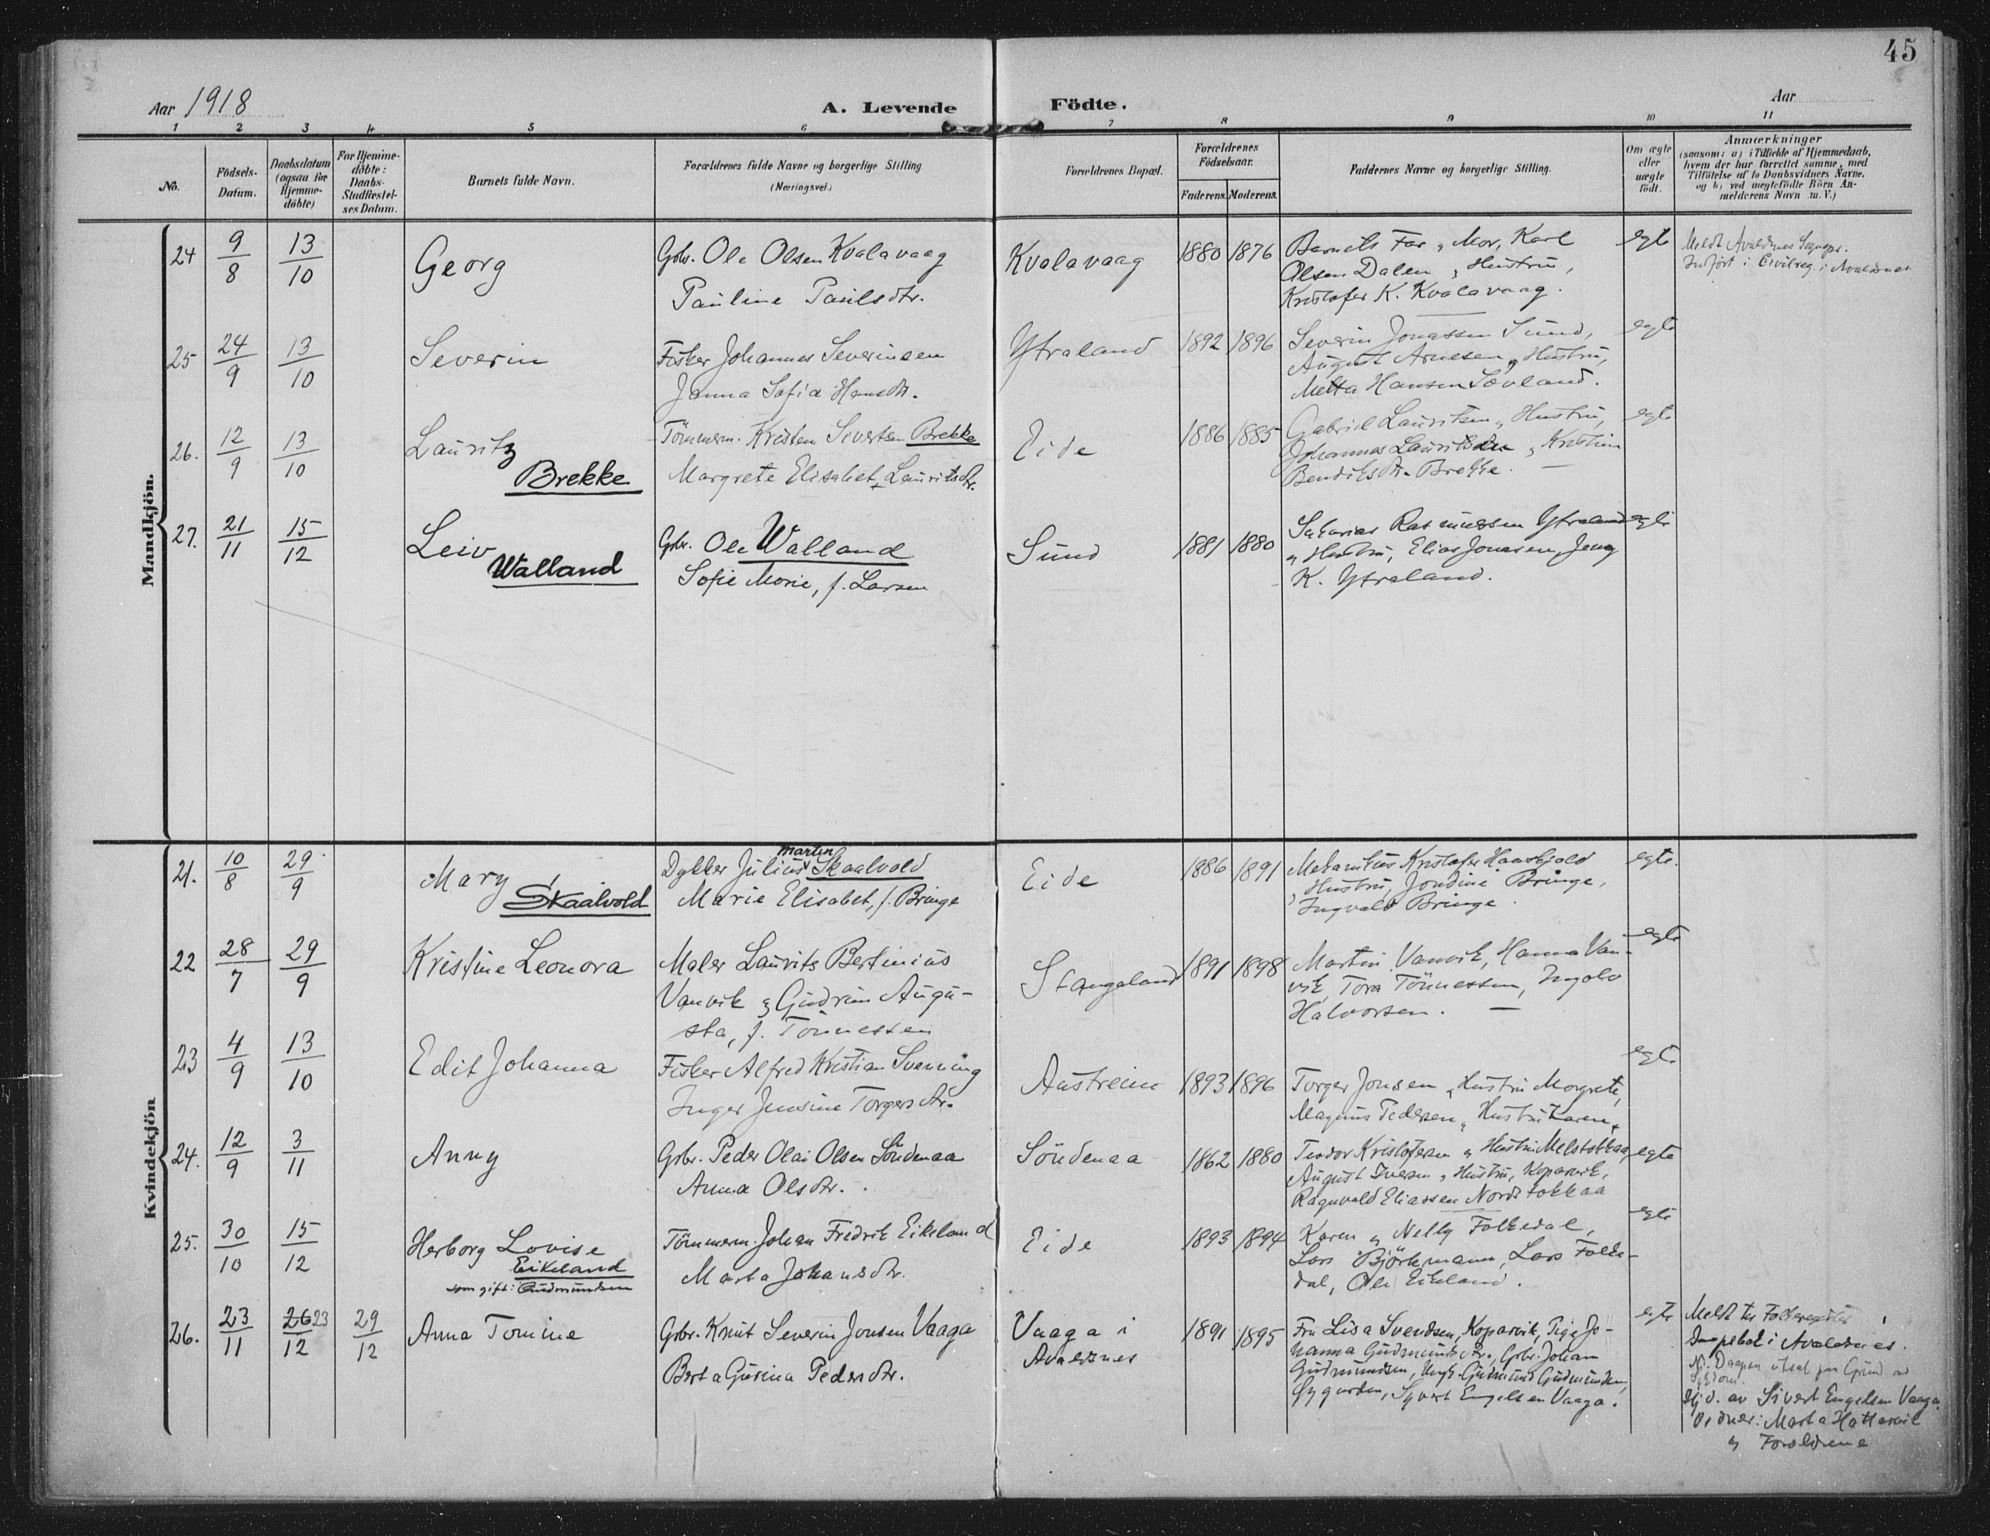 45
Aar 1918
A. Levende Födte.
Aar
1 2 3 4 5 6 7 8 9 10 11
No.
Födsels-
Datum.
Daabsdatum
(ogsaa for
Hjemme-
döbte)
For Hjemme-
döbte:
Daabs-
Stadfæstel-
ses Datum.
Barnets fulde Navn.
Forældrenes fulde Navne og borgerlige Stilling
(Næringsvei.)
Forældrenes Bopæl.
Forældrenes
Födselsaar.
Faderens. Moderens.
Faddernes Navne og borgerlige Stilling.
Om ægte
eller
uægte
födt.
Anmærkninger
(saasom: a) i Tilfælde af Hjemmedaab,
hvem der har forrettet samme, med
Tilföielse af to Daabsvidners Navne,
og b) ved uægtefödte Börn An-
melderens Navn m. V.)
Mandkjön.
24 9/8 13/10
Georg
Gbr. Ole Olsen Kvalavaag
Pauline Paulsdtr.
Kvalavaag
1880 1876
Barnets Far og Mor, Karl
Olsen Dalen og Hustru,
Kristofer K. Kvalavaag.
egte
Meldt Avaldsnes Sognepr.
Indfört i Civilreg. i Avaldsnes
25 24/9 13/10
Severin
Fisker Johannes Severinsen
Janna Sofia Hansdtr.
Ytraland
1892 1896
Severin Jonassen Sund,
August Arnesen og Hustru,
Metta Hansen Sævland.
egte
26. 12/9 13/10
Lauritz
Brekke
Tömmerm. Kristen Sivertsen Brekke
Margrete Elisabet Lauritsdtr.
Eide
1886 1885
Gabriel Lauritsen og Hustru,
Johannes Lauritsen og Kristine
Bendiksdtr. Brekke.
egte
27. 21/11 15/12
Leiv
Walland
Gbr. Ole Walland
Sofie Marie, f. Larsen
Sund
1881 1880
Sakarias Rasmussen Ytraland
og Hustru, Elias Jonasen, Jenny
K. Ytraland.
egte
Kvindekjön
21. 10/8 29/9
Mary
Skaalvold
Martin
Dykker Julius Skaalvold
Marie Elisabet, f. Bringe
Eide
1886 1891
Mekanikus Kristofer
og Hustru, Jondine Bringe,
Ingvald Bringe.
egte.
22 28/7 29/9
Kristine Leonora
Maler Laurits Bertinius
Vanvik og Gudrun Augu-
sta, f. Tönnessen
Stangeland
1891 1898
Martin Vanvik, Hanna Van-
vik, Tora Tönnessen, Ingolv
Halvorsen.
egte
23 4/9 13/10
Edit Johanna
Fisker Alfred Kristian Svenning
Inger Jensine Torgersdtr.
Austreim
1893 1896
Torger Jonsen og Hustru Margrete,
Magnus Pedersen og Hustru Karen
egte
24. 12/9 3/11
Anny
Gbr. Peder Olai Olsen Söndenaa
Anna Olsdtr.
Söndenaa
1862 1880
Teodor Kristofersen og Hustru Melstokkaa,
August Iversen og Hustru, Kopervik,
Ragnvald Eliassen Nordstokkaa
egte
25. 30/10 15/12
Herborg Lovise
Eikeland
som gift: Gudmundsen
Tömmerm. Johan Fredrik Eikeland
Marta Johansdtr.
Eide
1893 1894
Karen og Nelly Folkedal,
Lars Björkmann, Lars Folke-
dal, Ole Eikeland.
egte
26. 23/11 26 23/12 29/12
Anna Tomine
Gbr. Knut Severin Jonsen Vaaga
Berta Gurina Pedersdtr.
Vaaga i
Avaldsnes
1891 1895
Fru Lisa Svendsen, Kopervik, Pige Jo-
hanna Gudmundsdtr., Gbr. Johan
Gudmundsen, Ungk. Gudmund Gudmundsen,
Öygarden, Syvert Engelsen Vaaga.
egte
Meldt til Folkeregister
i Avaldsnes.
N. Daapen utsat paa Grund av
Sykdom.
Hj.d. av Sivert Engelsen Vaaga.
Vidner: Marta Hattarvik
og Forældrene